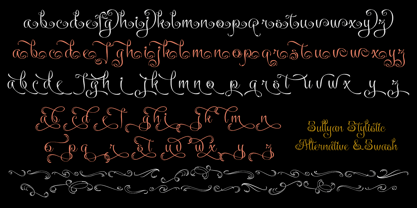 abcdefghijklmnopqrstuvwxyz
abcdefghijklmnopqrstuvwxyz
abcdefghijklmnopqrstuvwxyz
abcdefghijklmn
opqrstuvwxyz
Sullyan Stylistic
Alternative & Swash